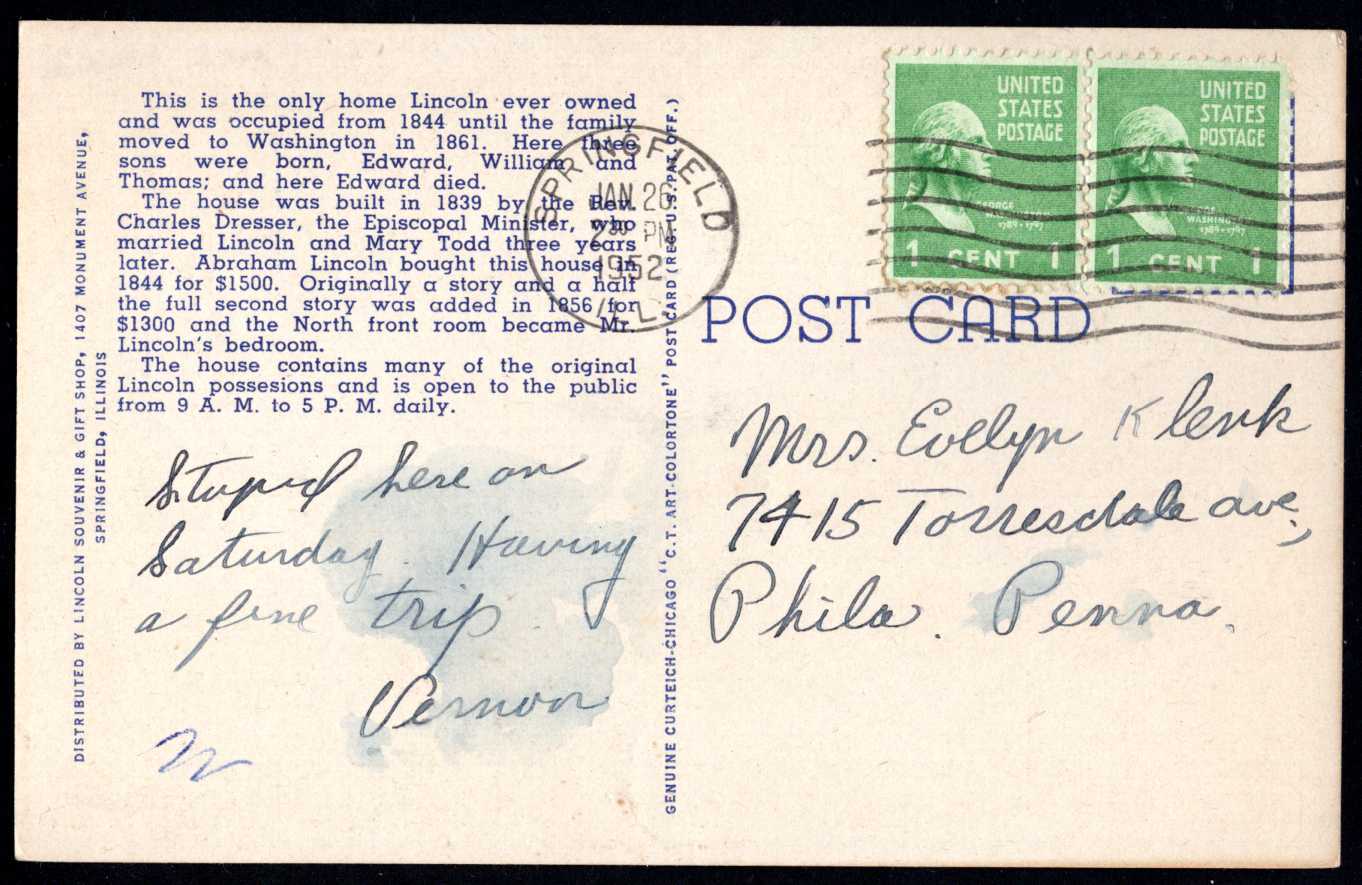 This is the only home Lincoln ever owned
and was occupied from 1844 until the family
moved to Washington in 1861. Here three
sons were born, Edward, William and
Thomas; and here Edward died.
The house was built in 1839 by the Rev.
Charles Dresser, the Episcopal Minister, who
married Lincoln and Mary Todd three years
later. Abraham Lincoln bought this house in
1844 for $1500. Originally a story and a half
the full second story was added in 1856 for
$1300 and the North front room became Mr.
Lincoln's bedroom.
The house contains many of the original
Lincoln possesions and is open to the public
from 9 A. M. to 5 P. M. daily.
DISTRIBUTED BY LINCOLN SOUVENIR & GIFT SHOP, 1407 MONUMENT AVENUE,
SPRINGFIELD, ILLINOIS
here on
Saturday. Having
a fine trip
Vernon
GENUINE CURTEICH-CHICAGO "C.T. ART-COLORTONE" POST CARD (REG. U.S. PAT. OFF.)
SPRINGFIELD
JAN. 26
2 30 PM
1952
ILL.
UNITED
STATES
POSTAGE
GEORGE
WASHINGTON
1789-1797
1 CENT 1
UNITED
STATES
POSTAGE
GEORGE
WASHINGTON
1789-1797
1 CENT 1
POST CARD
Mrs. Evelyn Klenk
7415 Torresdale ave,
Phila. Penna.